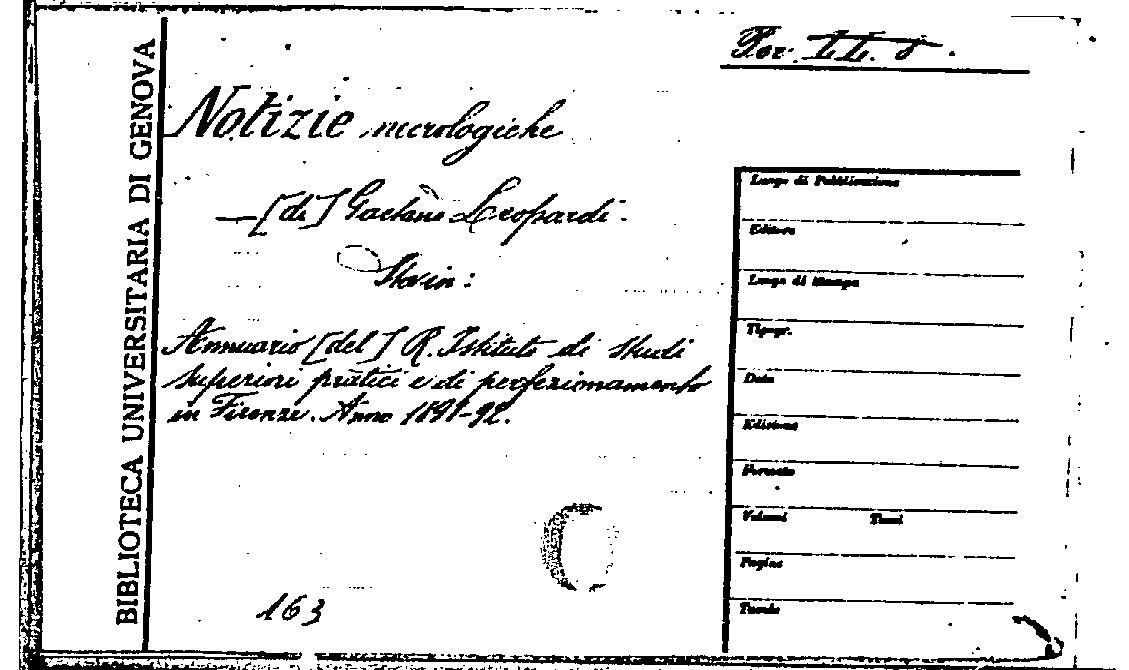 BIBLIOTECA UNIVERSITARIA DI GENOVA
Per. LL. 8.
Notizie necrologiche
— [di] Gaetano Leopardi.
Sta in:
Annuario [del] R. Istituto di Studi
superiori pratici e di perfezionamento
in Firenze. Anno 1891-92.
163
Luogo di Pubblicazione
Editore
Luogo di Stampa
Tipogr.
Data
Edizione
Formato
Volumi Tomi
Pagine
Tavole